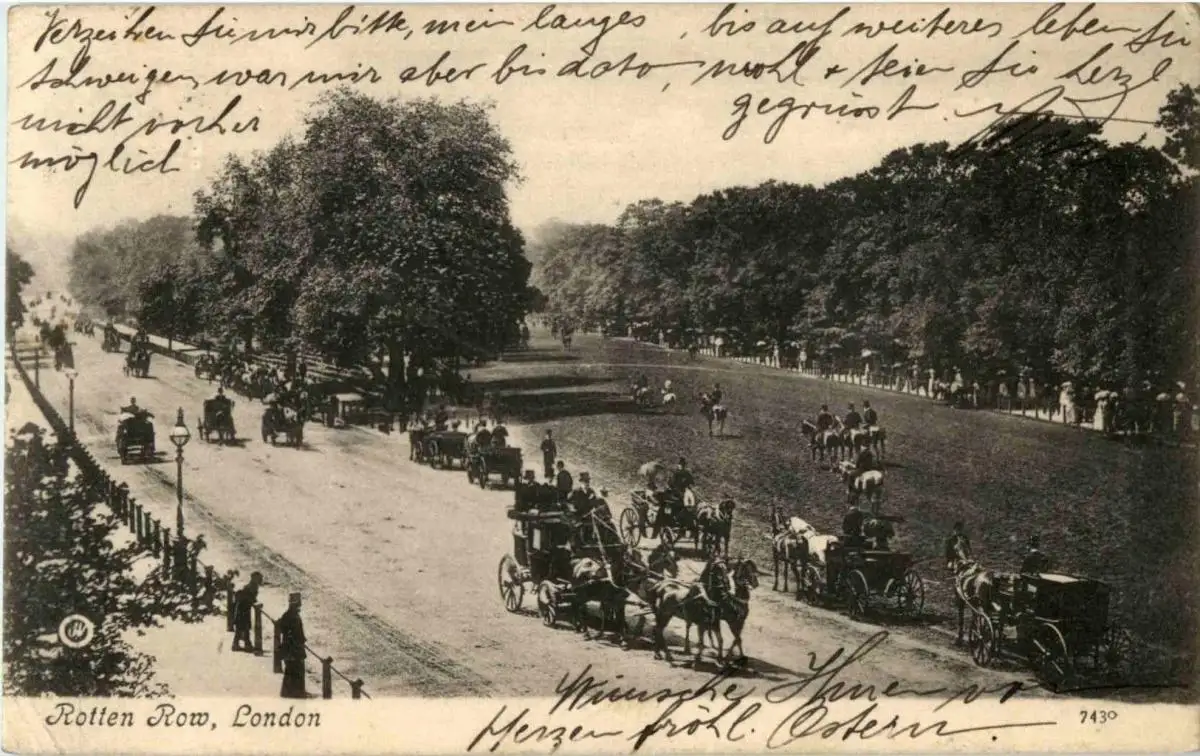 Verzeihen Sie mir bitte, mein langes
Schweigen, war mir aber bis dato
nicht vorher
möglich
, bis auf weiteres leben Sie
wohl + seien Sie herzl
gegrüsst
Wünsche Ihnen von
Herzen fröhl. Ostern
Rotten Row, London
7430